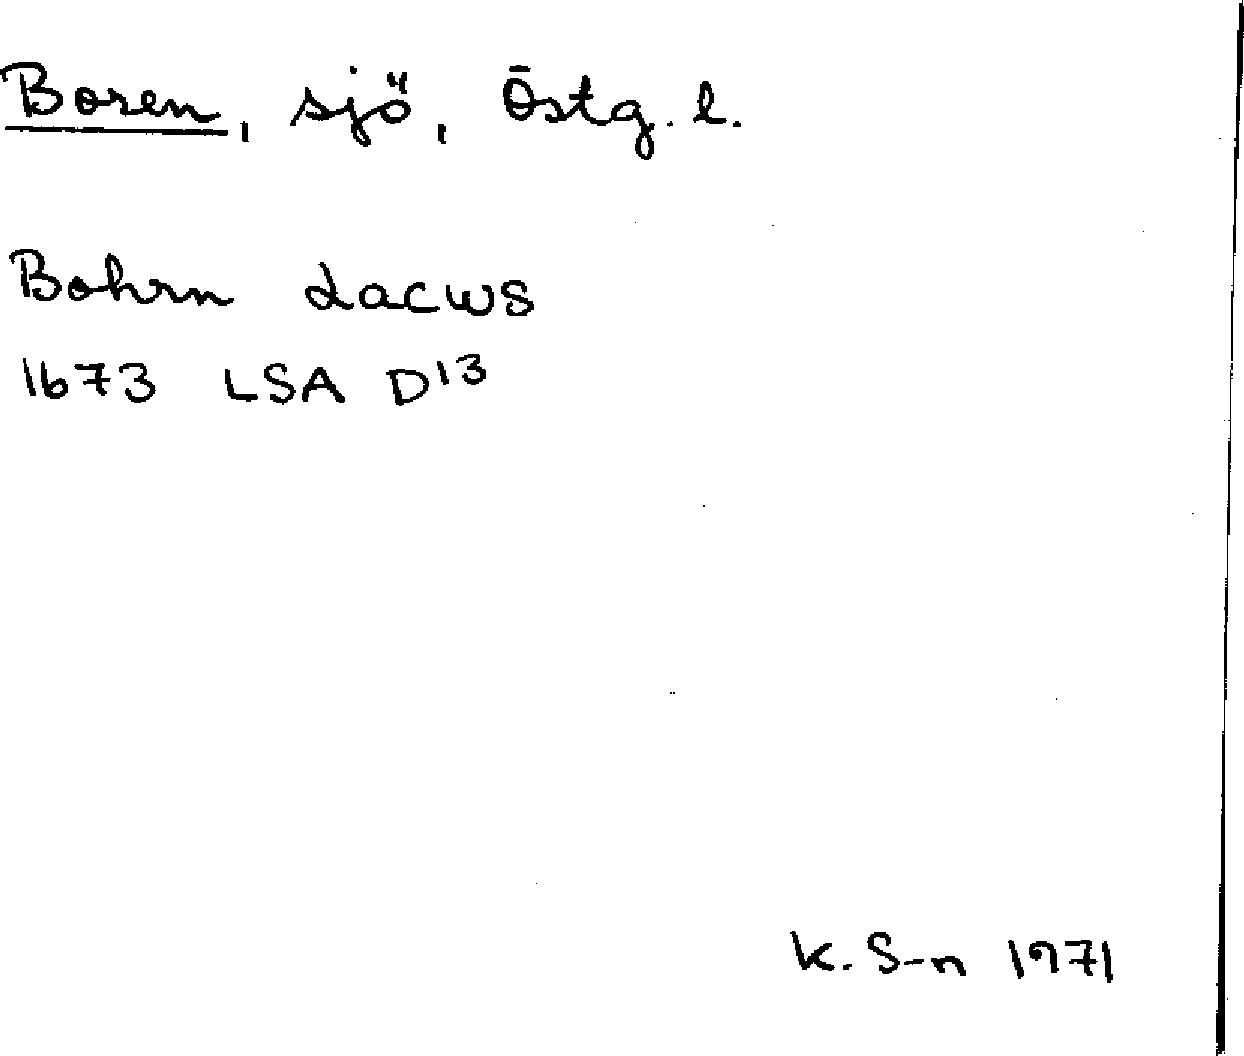 Boren, sjö, Östg. l.
Bohrn Lacus
1673 LSA D13
K. S-n 1971